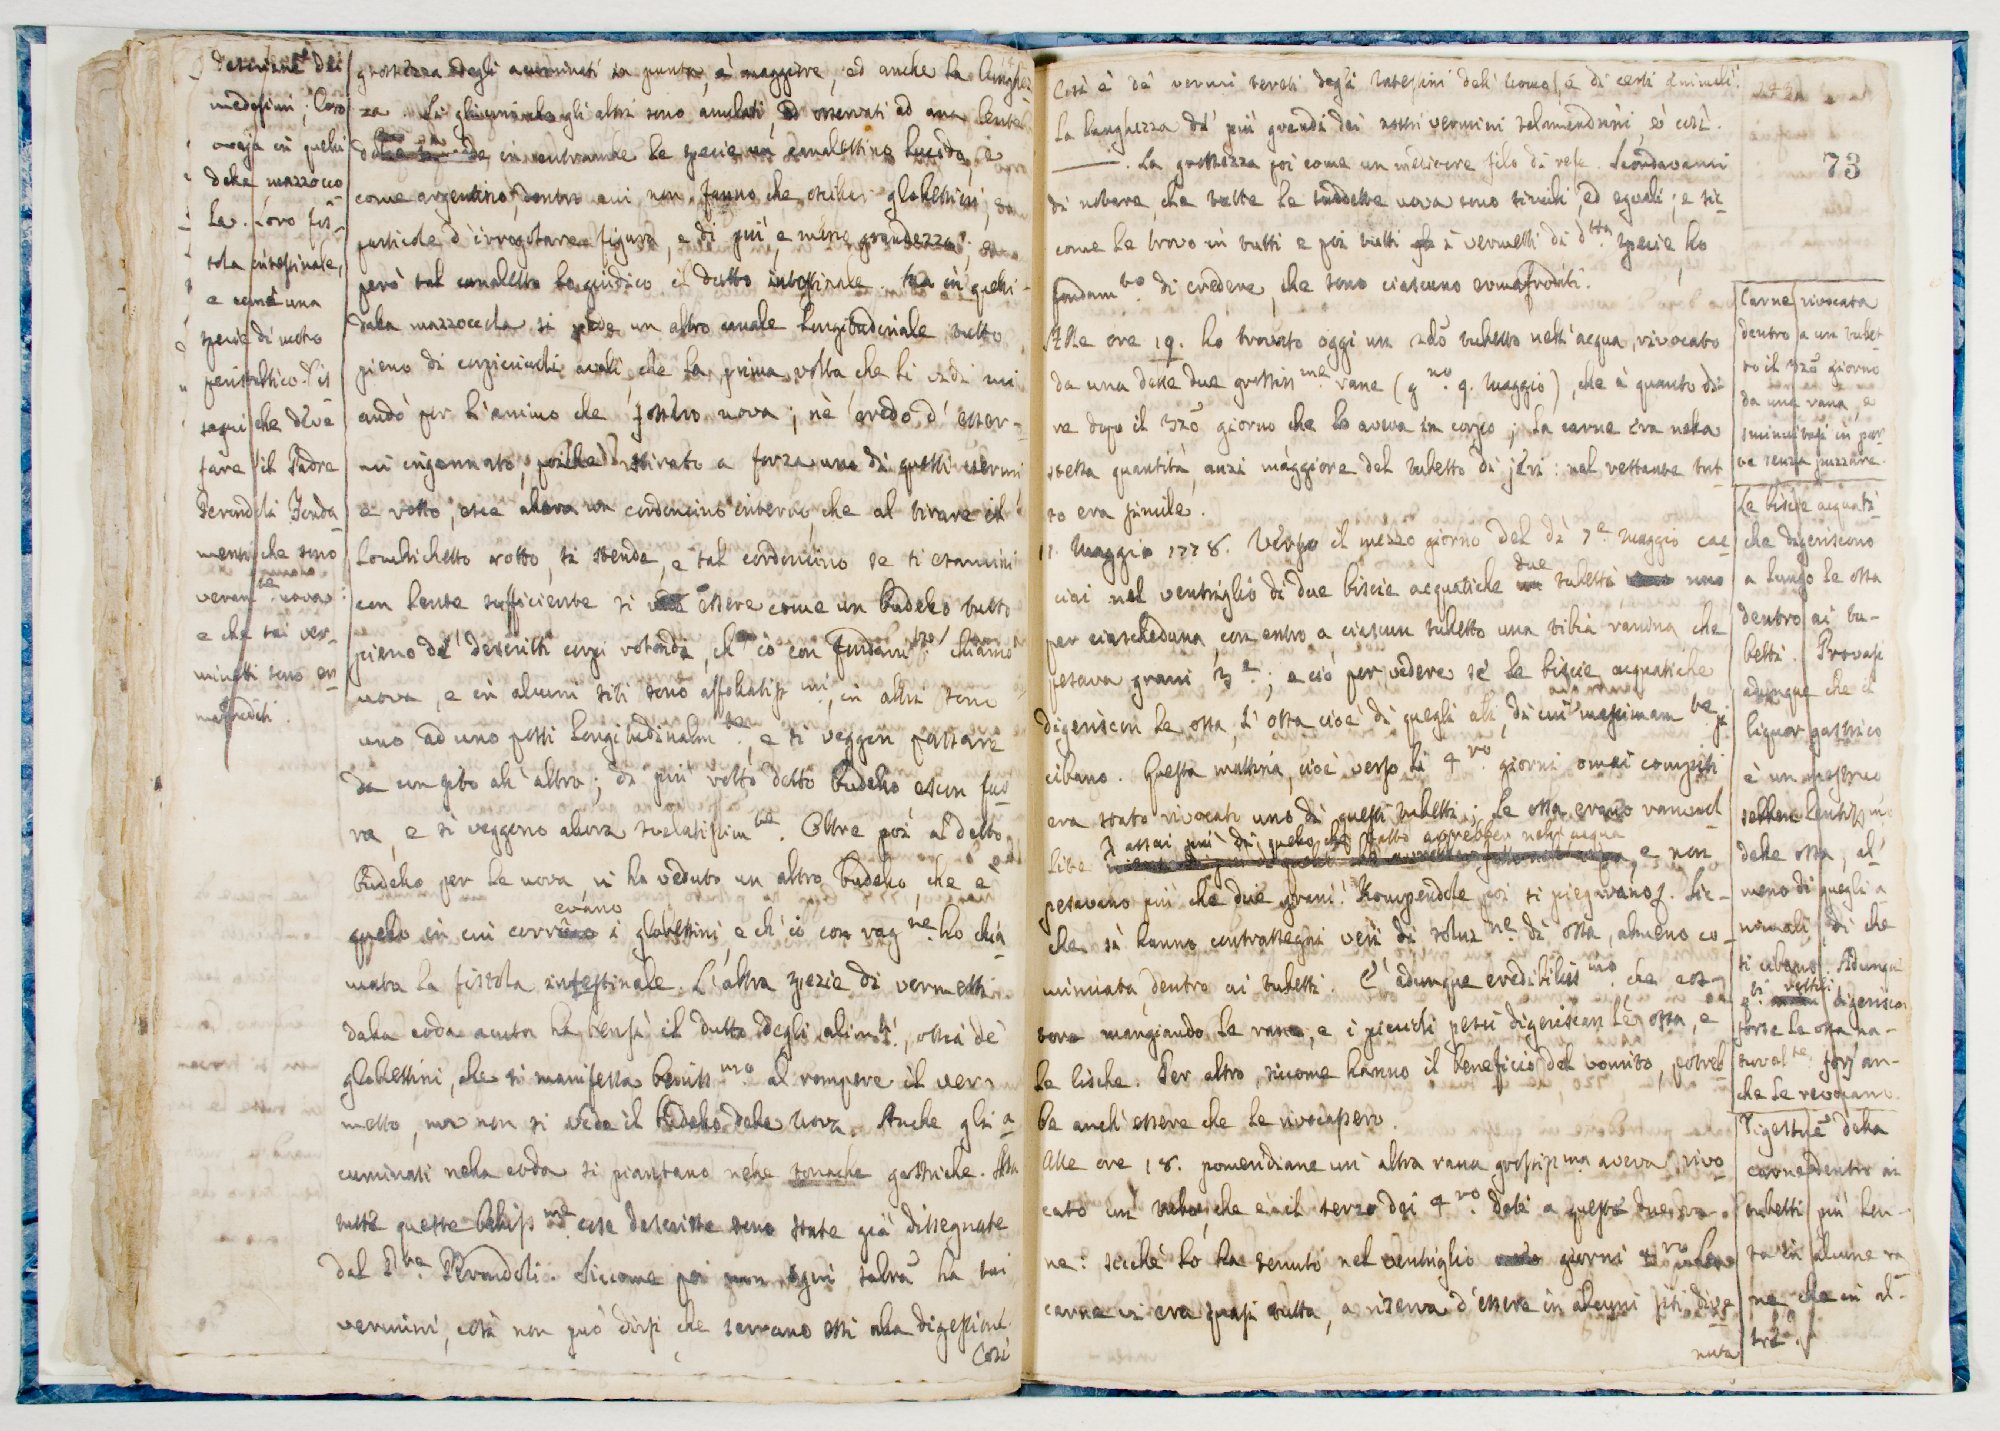 descrizne dei
medesimi; Loro
ovaja in quelli
della mazzocco
la. Loro fis-
tola intestinale,
e come una
specie di moto
peristaltico. Di
segni che deve
fare il Padre
mente che sono
veramte uova:
e che tai ver-
minetti sono er-
mafroditi.
grossezza degli acuminati in punta, è maggiore, ed anche la lunghez-
za. Sì gli uni che gli altri sono anulati, ed osservati ad una lente
in entrambe le specie un canalettino lucido, e
come argentino, dentro cui non fanno che oscillar globettini,
particole d'irregolare figura, e di più, e meno grandezza;
però tal canaletto lo giudico il dutto intestinale. Ma in quelli
dalla mazzocella si vede un altro canale longitudinale tutto
pieno di corpicciuoli ovali, che la prima volta che li vidi mi
andò per l'animo che fossero uova; nè credo d'esser-
mi ingannato, poichè stirato a forza uno di questi vermi
e rotto, esce allora un cordoncino interno, che al tirare il
lombrichetto rotto, si stende, e tal cordoncino se si esamini
con lente sufficiente si vede essere come un budello tutto
pieno de' descritti corpi rotondi, ch'io con fondamto chiamo
uova, e in alcuni siti sono affollatissmi, in altri sono
uno ad uno posti longitudinalmte, e si veggon passare
da un sito all'altro; di più rotto detto budello escon fuo-
ra, e si veggono allora svelatissimte. Oltre poi al detto
budello per le uova, vi ho veduto un altro budello, che è
quello in cui correvano i globettini, e ch'io con ragne ho chia-
mata la fistola intestinale. L'altra spezie di vermetti
dalla coda acuta ha bensì il dutto degli alimti, ossia de'
globettini, che si manifesta benissmo al rompere il ver-
metto, ma non si vede il budello delle uova. Anche gli a-
cuminati nella coda si piantano nelle tonache gastriche.
tutte queste bellissme cose descritte sono state già dissegnate
dal Pre. Siccome poi non ogni salva ha tai
vermini, così non può dirsi che servano essi alla digestione.
Così
Così è de' vermi tereti degli intestini dell'uomo, e di certi animali.
La lunghezza de' più grandi dei nostri vermini salamandrini è così.
——. La grossezza poi come un mediocre filo di refe. Scordavami
di notare, che tutte le suddette uova sono simili, ed eguali; e sic-
come le trovo in tutti e poi tutti i vermetti di dtta specie, ho
fondamto di credere, che sono ciascuno ermafroditi.
Alle ore 19. ho trovato oggi un 2do tubetto nell'acqua, rivocato
da una delle due grossissme rane (gno 9. Maggio), che è quanto di-
re dopo il 3zo giorno che lo aveva in corpo; la carne era nella
stessa quantità, anzi maggiore del tubetto di jeri: nel restante tut-
to era simile.
11. Maggio 1778. Verso il mezzo giorno del dì 7e Maggio cac-
ciai nel ventriglio di due biscie acquatiche due tubetti uno
per ciascheduna, con entro a ciascun tubetto una tibia ranina che
pesava grani 3e; e ciò per vedere se le biscie acquatiche
digeriscon le ossa, l'ossa cioè di quegli animali, di cui massimamte si
cibano. Questa mattina, cioè verso li 4ro giorni omai compiti
era stato rivocato uno di questi tubetti; le ossa erano rammol-
lite assai più di quello che fatto avrebber nell'acqua, e non
pesavano più che due grani. Rompendole poi si piegavano. Sic-
che si hanno contrassegni veri di soluzne di ossa, almeno co-
minciata, dentro ai tubetti. È adunque credibilissmo che cos-
toro mangiando le rane, e i piccioli pesci digeriscan le ossa, e
le lische. Per altro, siccome hanno il beneficio del vomito, potreb-
be anch'essere che le rivocassero.
Alle ore 18. pomeridiane un'altra rana grossissma aveva rivo-
cato un tubo, che è il terzo dei 4ro dati a queste due ra-
ne: sicchè lo ha tenuto nel ventriglio giorni 4ro La
carne vi era quasi tutta, a riserva d'essere in alcuni siti dive-
nuta
73
Carne rivocata
dentro a un tubet-
to il 3zo giorno
da una rana, e
sminuitasi in par-
te senza puzzare.
Le biscie acquati-
che digeriscono
a lungo le ossa
dentro ai tu-
betti. Provasi
adunque che il
liquor gastrico
è un mestruo
sebben lentissmo
delle ossa, al-
meno di quegli a-
nimali, di che
si cibano. Adunque
qti rettili digeriscon
forse le ossa na-
turalte, fors'an-
che le revocano.
Digestne della
carne dentro ai
tubetti più len-
ta in alcune ra-
ne che in al-
tre.